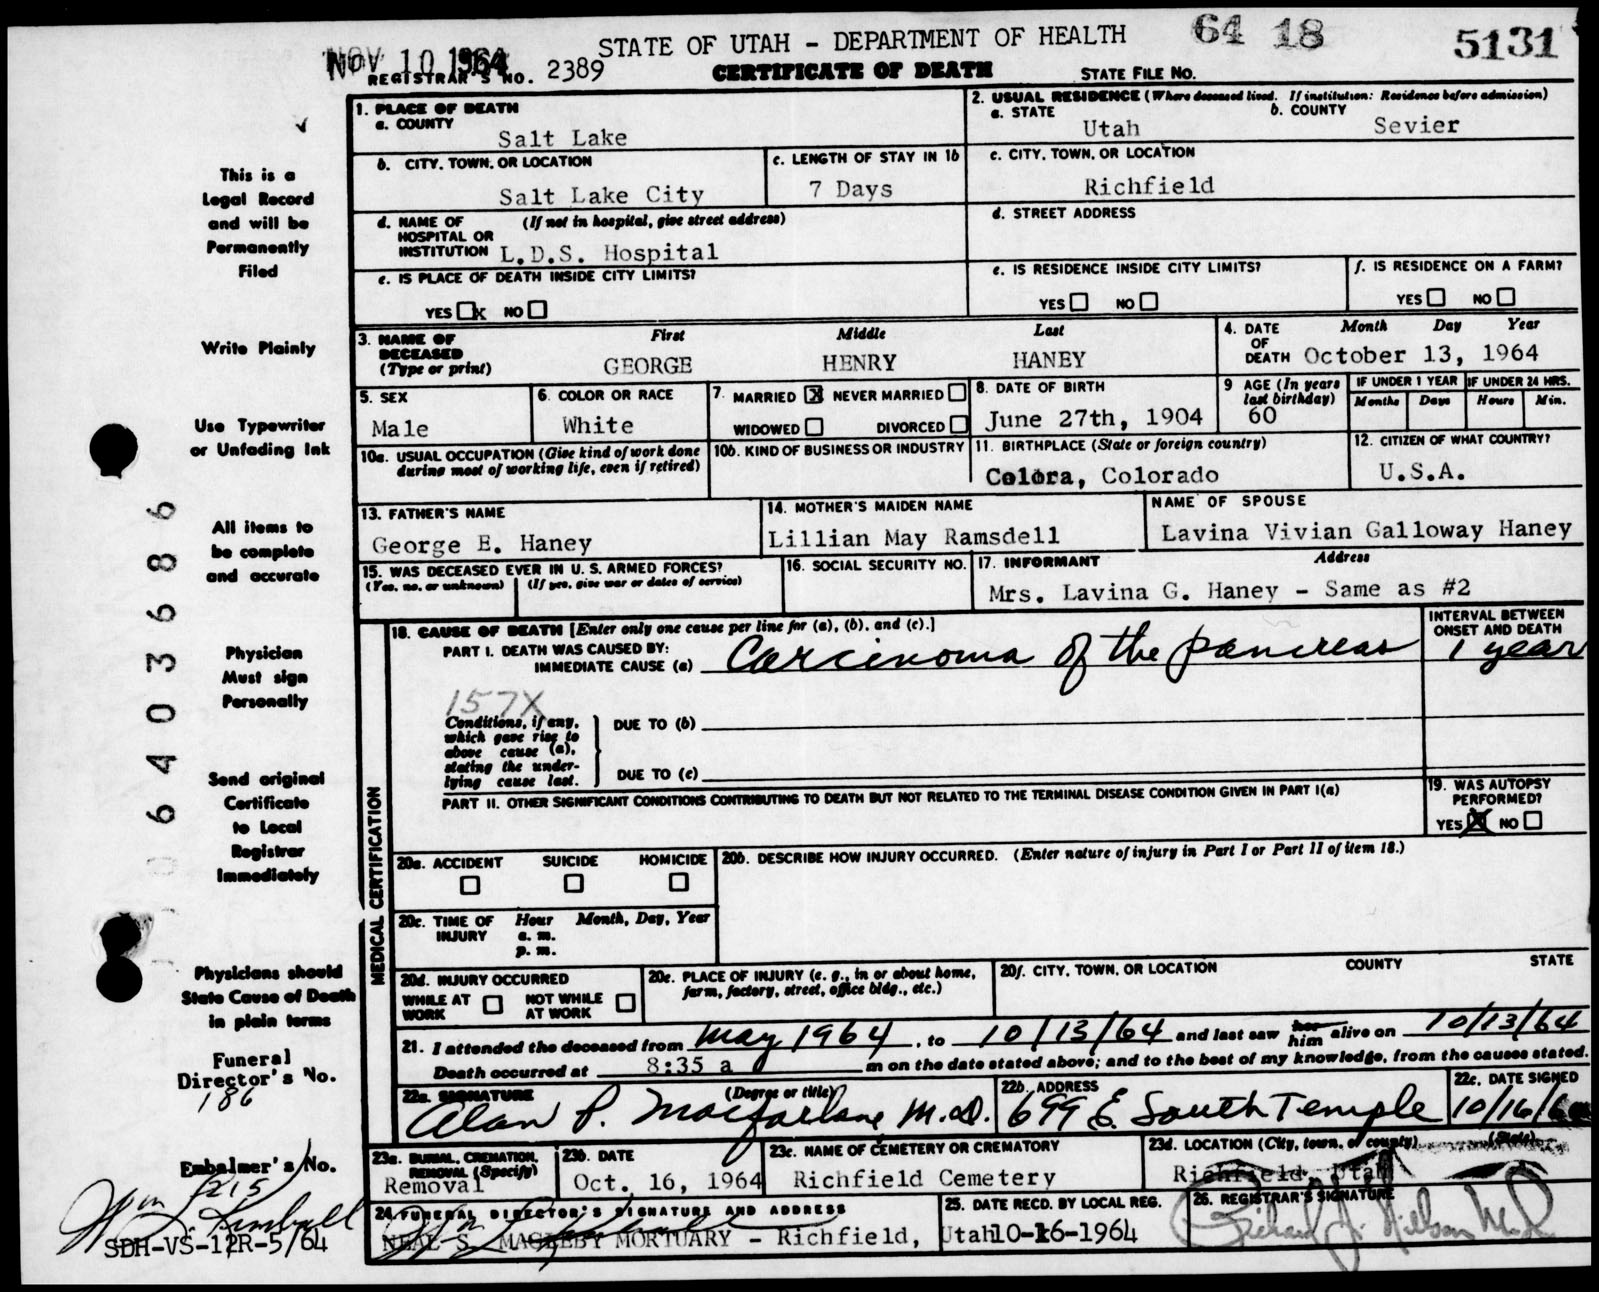 NOV 10 1964
STATE OF UTAH - DEPARTMENT OF HEALTH
64 18
5131
REGISTRAR'S NO. 2389
CERTIFICATE OF DEATH
STATE FILE NO.
1. PLACE OF DEATH
a. COUNTY
Salt Lake
2. USUAL RESIDENCE (Where deceased lived. If institution: Residence before admission)
a. STATE
Utah
b. COUNTY
Sevier
b. CITY, TOWN, OR LOCATION
Salt Lake City
c. LENGTH OF STAY IN 1b
7 Days
c. CITY, TOWN, OR LOCATION
Richfield
d. NAME OF HOSPITAL OR INSTITUTION
(If not in hospital, give street address)
L.D.S. Hospital
d. STREET ADDRESS
e. IS PLACE OF DEATH INSIDE CITY LIMITS?
YES x NO
e. IS RESIDENCE INSIDE CITY LIMITS?
YES NO
f. IS RESIDENCE ON A FARM?
YES NO
3. NAME OF DECEASED
(Type or print)
First Middle Last
GEORGE HENRY HANEY
4. DATE OF DEATH
Month Day Year
October 13, 1964
5. SEX
Male
6. COLOR OR RACE
White
7. MARRIED X NEVER MARRIED
WIDOWED DIVORCED
8. DATE OF BIRTH
June 27th, 1904
9 AGE (In years last birthday)
60
IF UNDER 1 YEAR
Months Days
IF UNDER 24 HRS.
Hours Min.
10a. USUAL OCCUPATION (Give kind of work done during most of working life, even if retired)
10b. KIND OF BUSINESS OR INDUSTRY
11. BIRTHPLACE (State or foreign country)
Colora, Colorado
12. CITIZEN OF WHAT COUNTRY?
U.S.A.
13. FATHER'S NAME
George E. Haney
14. MOTHER'S MAIDEN NAME
Lillian May Ramsdell
NAME OF SPOUSE
Lavina Vivian Galloway Haney
15. WAS DECEASED EVER IN U. S. ARMED FORCES?
(Yes, no, or unknown) (If yes, give war or dates of service)
16. SOCIAL SECURITY NO.
17. INFORMANT Address
Mrs. Lavina G. Haney - Same as #2
MEDICAL CERTIFICATION
18. CAUSE OF DEATH [Enter only one cause per line for (a), (b), and (c).]
INTERVAL BETWEEN ONSET AND DEATH
PART I. DEATH WAS CAUSED BY:
IMMEDIATE CAUSE (a) Carcinoma of the pancreas
1 year
157X
Conditions, if any, which gave rise to above cause (a), stating the underlying cause last.
DUE TO (b)
DUE TO (c)
PART II. OTHER SIGNIFICANT CONDITIONS CONTRIBUTING TO DEATH BUT NOT RELATED TO THE TERMINAL DISEASE CONDITION GIVEN IN PART I(a)
19. WAS AUTOPSY PERFORMED?
YES X NO
20a. ACCIDENT SUICIDE HOMICIDE
20b. DESCRIBE HOW INJURY OCCURRED. (Enter nature of injury in Part I or Part II of item 18.)
20c. TIME OF INJURY
Hour Month, Day, Year
a. m.
p. m.
20d. INJURY OCCURRED
WHILE AT WORK NOT WHILE AT WORK
20e. PLACE OF INJURY (e. g., in or about home, farm, factory, street, office bldg., etc.)
20f. CITY, TOWN, OR LOCATION COUNTY STATE
21. I attended the deceased from May 1964, to 10/13/64 and last saw her him alive on 10/13/64
Death occurred at 8:35 a m on the date stated above; and to the best of my knowledge, from the causes stated.
22a. SIGNATURE (Degree or title)
Alan P. Macfarlane M.D.
22b. ADDRESS
699 E. South Temple
22c. DATE SIGNED
10/16/64
23a. BURIAL, CREMATION, REMOVAL (Specify)
Removal
23b. DATE
Oct. 16, 1964
23c. NAME OF CEMETERY OR CREMATORY
Richfield Cemetery
23d. LOCATION (City, town, or county) (State)
Richfield, Utah
24. FUNERAL DIRECTOR'S SIGNATURE AND ADDRESS
NEAL S. MAGLEBY MORTUARY - Richfield, Utah
25. DATE RECD. BY LOCAL REG.
10-16-1964
26. REGISTRAR'S SIGNATURE
Richard J. Nielson M.D.
This is a
Legal Record
and will be
Permanently
Filed
Write Plainly
Use Typewriter
or Unfading Ink
All items to
be complete
and accurate
Physician
Must sign
Personally
Send original
Certificate
to Local
Registrar
Immediately
Physicians should
State Cause of Death
in plain terms
Funeral
Director's No.
186
Embalmer's No.
1215
Wm L. Kimball
SDH-VS-12R-5/64
6403686